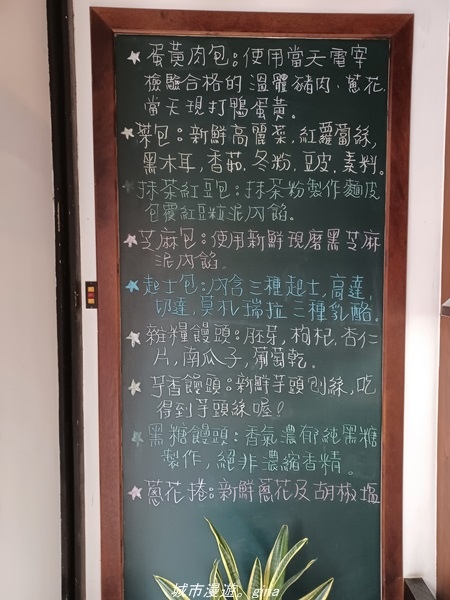 ★蛋黃肉包:使用當天電宰
檢驗合格的溫體豬肉、蔥花,
當天現打鴨蛋黃。
★菜包:新鮮高麗菜,紅蘿蔔絲,
黑木耳,香菇,冬粉,豆皮,素料。
★抹茶紅豆包:抹茶粉製作麵皮
包覆紅豆粒泥內餡。
★芝麻包:使用新鮮現磨黑芝麻
泥內餡。
★起士包:內含三種起士,高達,
切達,莫札瑞拉三種乳酪。
★雜糧饅頭:胚芽,枸杞,杏仁
片,南瓜子,葡萄乾。
★芋香饅頭:新鮮芋頭刨絲,吃
得到芋頭絲喔!
★黑糖饅頭:香氣濃郁純黑糖
製作,絕非濃縮香精。
★蔥花捲:新鮮蔥花及胡椒塩
城市漫遊。gina